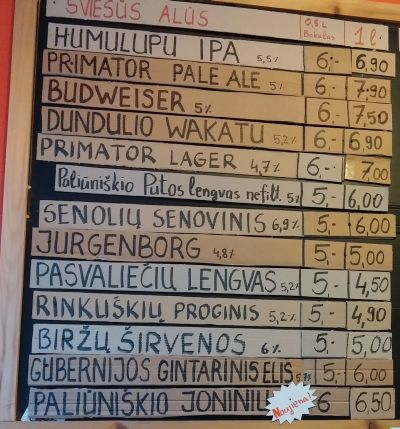 ŠVIESŪS ALŪS 0,5L Bokalas 1 l.
HUMULUPU IPA 5,5% 6,- 6,90
PRIMATOR PALE ALE 5% 6,- 7,90
BUDWEISER 5% 6,- 7,50
DUNDULIO WAKATU 5,2% 6,- 6,90
PRIMATOR LAGER 4,7% 6,- 7,00
Paliūniškio Putos lengvas nefilt. 5% 5,- 6,00
SENOLIŲ SENOVINIS 6,9% 5,- 6,00
JURGENBORG 4,8% 5,- 5,00
PASVALIEČIŲ LENGVAS 5,2% 5,- 4,50
RINKUŠKIŲ PROGINIS 5,2% 5,- 4,90
BIRŽŲ ŠIRVENOS 6% 5,- 5,00
GUBERNIJOS GINTARINIS ELIS 5,- 6,00
PALIŪNIŠKIO Naujiena 6 6,50